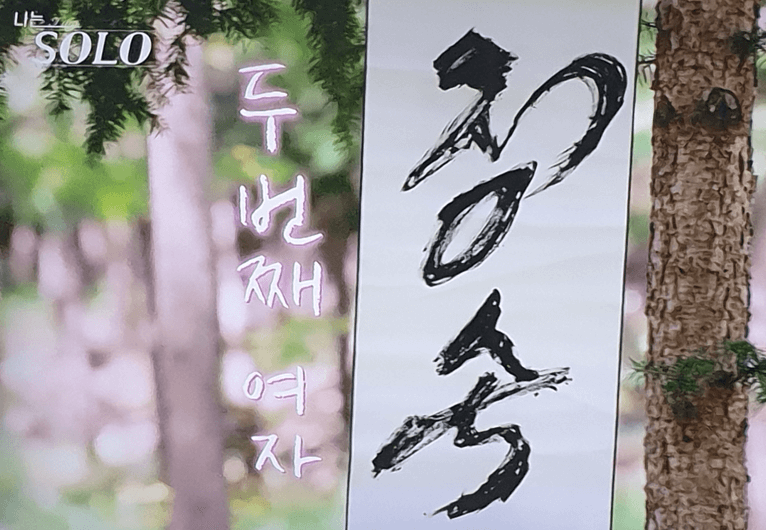 나는 SOLO
두 번째 여자
정숙